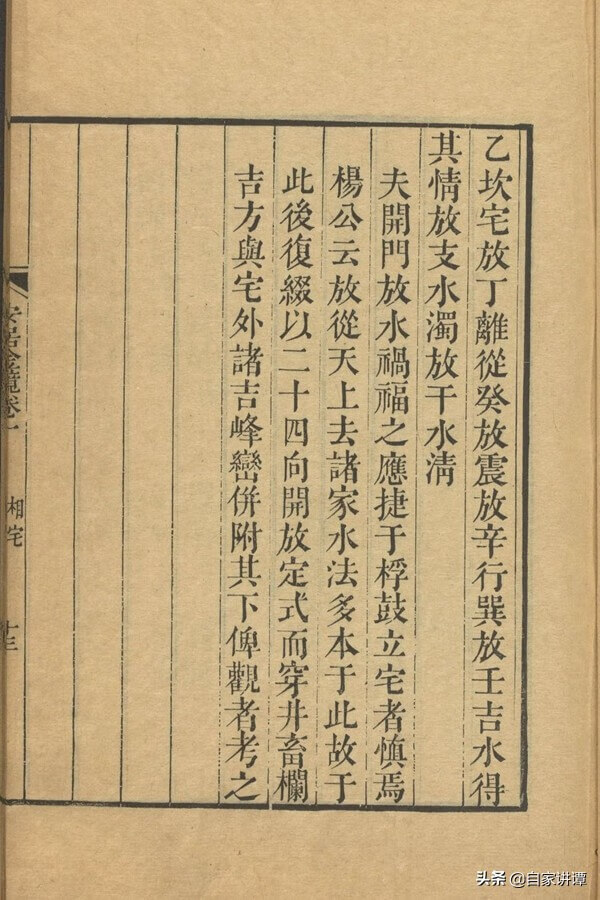 乙坎宅放丁離從癸放震放辛行巽放壬吉水得
其情放支水濁放干水淸
夫開門放水禍福之應捷于桴鼓立宅者愼焉
楊公云放從天上去諸家水法多本于此故于
此後復綴以二十四向開放定式而穿井畜欄
吉方與宅外諸吉峰巒併附其下俾觀者考之
安居金鏡卷一
相宅
十三
头条 @自家讲谭